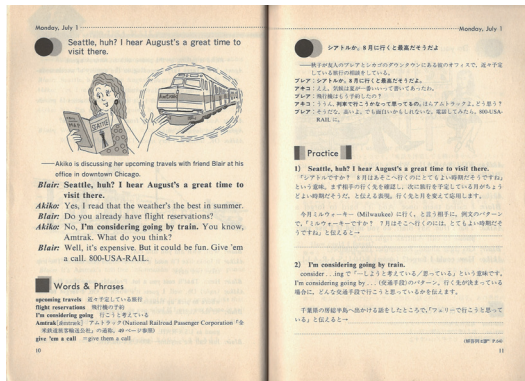 Monday, July 1
Seattle, huh? I hear August's a great time to
visit there.
SEATTLE
——Akiko is discussing her upcoming travels with friend Blair at his
office in downtown Chicago.
Blair: Seattle, huh? I hear August's a great time to
visit there.
Akiko: Yes, I read that the weather's the best in summer.
Blair: Do you already have flight reservations?
Akiko: No, I'm considering going by train. You know,
Amtrak. What do you think?
Blair: Well, it's expensive. But it could be fun. Give 'em
a call. 800-USA-RAIL.
Words & Phrases
upcoming travels 近々予定している旅行
flight reservations 飛行機の予約
I'm considering going 行こうと考えている
Amtrak アムトラック(National Railroad Passenger Corporation「全
米鉄道旅客輸送公社」の通称. 49ページ参照)
give 'em a call =give them a call
10
Monday, July 1
シアトルか。8月に行くと最高だそうだよ
——秋子が友人のブレアとシカゴのダウンタウンにある彼のオフィスで，近々予定
している旅行の相談をしている。
ブレア：シアトルか。8月に行くと最高だそうだよ。
アキコ：ええ，気候は夏が一番いいって書いてあったわ。
ブレア：飛行機はもう予約したの？
アキコ：ううん，列車で行こうかなって思ってるの。ほらアムトラックよ。どう思う？
ブレア：そうだなあ，高いよ。でも面白いかもしれないな。電話してみたら。800-USA-
RAIL に。
Practice
1) Seattle, huh? I hear August's a great time to visit there.
「シアトルですか？ 8月はあそこへ行くのにとてもよい時期だそうですね」
という意味。まず相手の行く先を確認し，次に旅行を予定している月がちょう
どよい時期だそうだ，と伝える表現。行く先と月を変えて応用します。
今月ミルウォーキー (Milwaukee) に行く，と言う相手に，例文のパターン
で，「ミルウォーキーですか？ 7月はそこへ行くのには，とてもよい時期だそ
うですね」と伝えると→
2) I'm considering going by train.
consider . . . ing で「…しようと考えている／思っている」という意味です。
I'm considering going by . . . (交通手段)のパターン。行く先が決まっている
場合に，どんな交通手段で行こうと思っているかを伝えます。
千葉県の房総半島へ出かける話をしたところで，「フェリーで行こうと思って
いる」と伝えると→
11